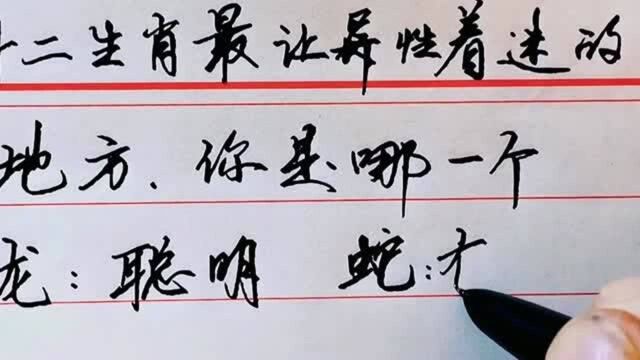 十二生肖最让异性着迷的
地方.你是哪一个
龙:聪明 蛇:才